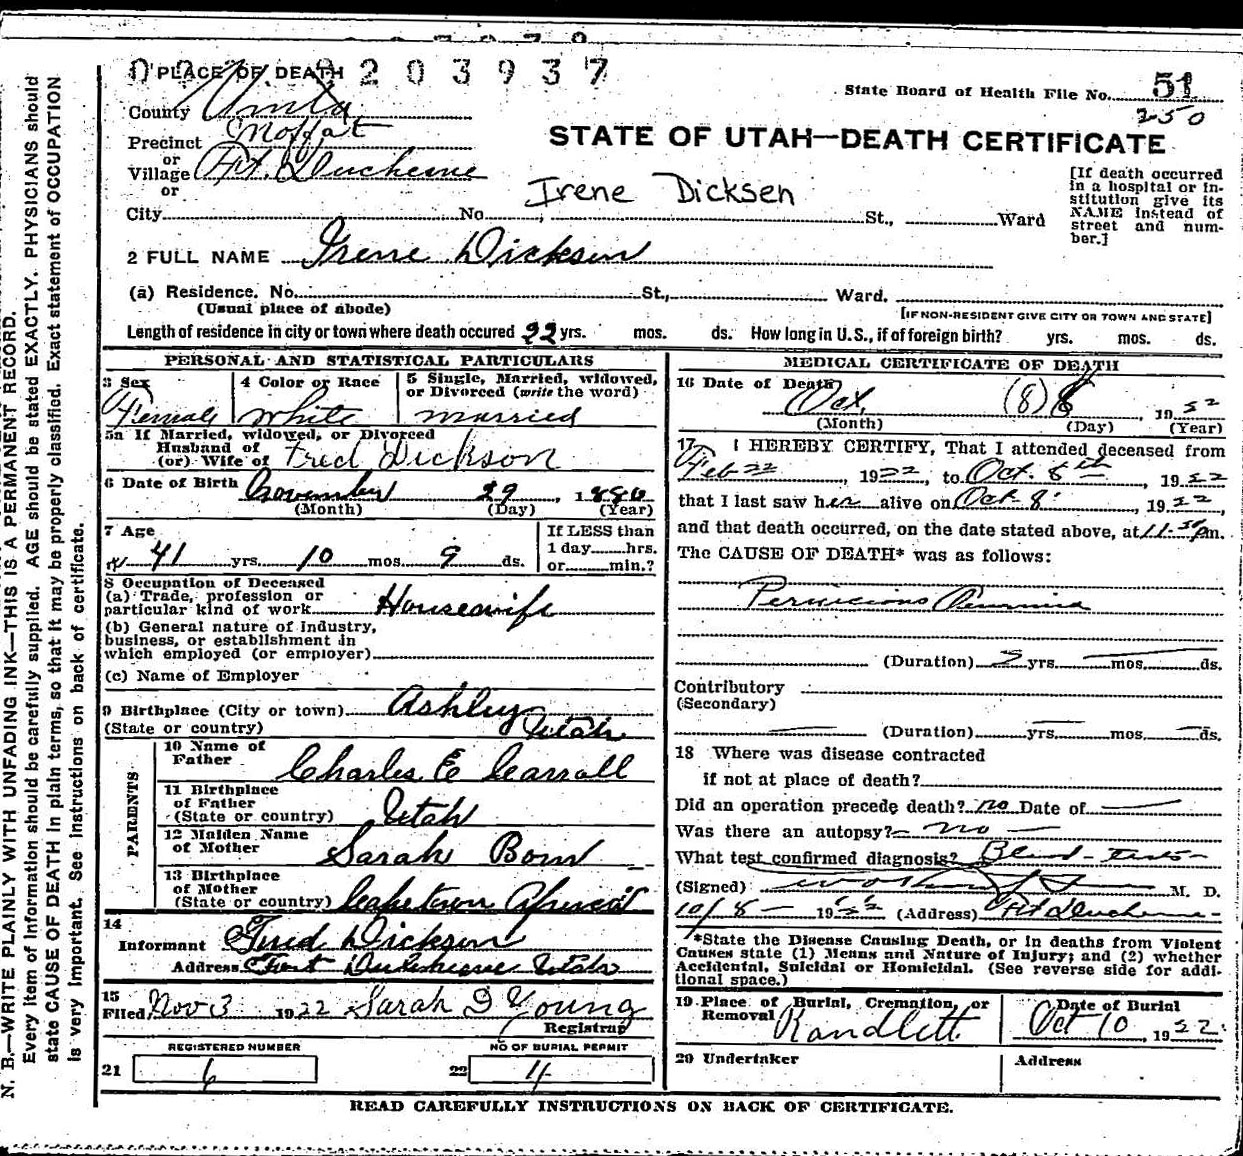 203937
PLACE OF DEATH
State Board of Health File No. 51
250
County Uinta
Precinct Moffat
STATE OF UTAH—DEATH CERTIFICATE
or
Village Ft. Duchesne
or
Irene Dicksen
[If death occurred in a hospital or institution give its NAME instead of street and number.]
City No. St., Ward
2 FULL NAME Irene Dickson
(a) Residence. No. St., Ward.
(Usual place of abode) [IF NON-RESIDENT GIVE CITY OR TOWN AND STATE]
Length of residence in city or town where death occured 22 yrs. mos. ds. How long in U.S., if of foreign birth? yrs. mos. ds.
PERSONAL AND STATISTICAL PARTICULARS
3 Sex
Female
4 Color or Race
White
5 Single, Married, widowed, or Divorced (write the word)
Married
5a If Married, widowed, or Divorced
Husband of
(or) Wife of Fred Dickson
6 Date of Birth November 29, 1880
(Month) (Day) (Year)
7 Age
41 yrs. 10 mos. 9 ds.
If LESS than
1 day hrs.
or min.?
8 Occupation of Deceased
(a) Trade, profession or
particular kind of work Housewife
(b) General nature of industry,
business, or establishment in
which employed (or employer)
(c) Name of Employer
9 Birthplace (City or town) Ashley
(State or country) Utah
PARENTS
10 Name of
Father Charles E Carroll
11 Birthplace
of Father
(State or country) Utah
12 Maiden Name
of Mother Sarah Born
13 Birthplace
of Mother
(State or country) Capetown Africa
14
Informant Fred Dickson
Address Fort Duchesne Utah
15
Filed Nov 3 1922 Sarah G Young
Registrar
REGISTERED NUMBER NO OF BURIAL PERMIT
21 6 22 4
MEDICAL CERTIFICATE OF DEATH
16 Date of Death
Oct. (8) 8, 1922
(Month) (Day) (Year)
17 I HEREBY CERTIFY, That I attended deceased from
Feb 22, 1922, to Oct. 8th, 1922
that I last saw her alive on Oct. 8, 1922,
and that death occurred, on the date stated above, at 11.30 pm.
The CAUSE OF DEATH* was as follows:
Pernicious Anemia
(Duration) yrs. mos. ds.
Contributory
(Secondary)
(Duration) yrs. mos. ds.
18 Where was disease contracted
if not at place of death?
Did an operation precede death? no Date of
Was there an autopsy? — no —
What test confirmed diagnosis? Blood - tests -
(Signed) M. D.
10/8 - 1922 (Address) Ft Duchesne -
*State the Disease Causing Death, or in deaths from Violent
Causes state (1) Means and Nature of Injury; and (2) whether
Accidental, Suicidal or Homicidal. (See reverse side for addi-
tional space.)
19 Place of Burial, Cremation, or
Removal Randlett
Date of Burial
Oct 10 1922
20 Undertaker Address
READ CAREFULLY INSTRUCTIONS ON BACK OF CERTIFICATE.
N. B.—WRITE PLAINLY WITH UNFADING INK—THIS IS A PERMANENT RECORD.
Every item of information should be carefully supplied. AGE should be stated EXACTLY. PHYSICIANS should
state CAUSE OF DEATH in plain terms, so that it may be properly classified. Exact statement of OCCUPATION
is very important. See instructions on back of certificate.